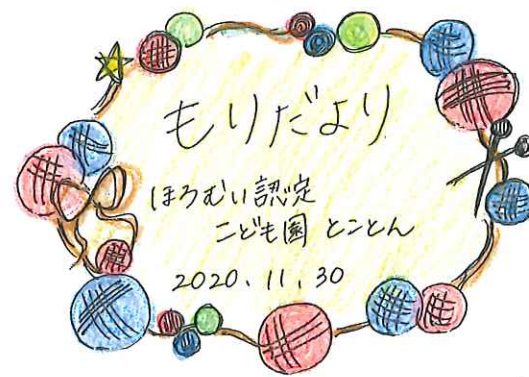 もりだより
ほろむい認定
こども園 とことん
2020.11.30